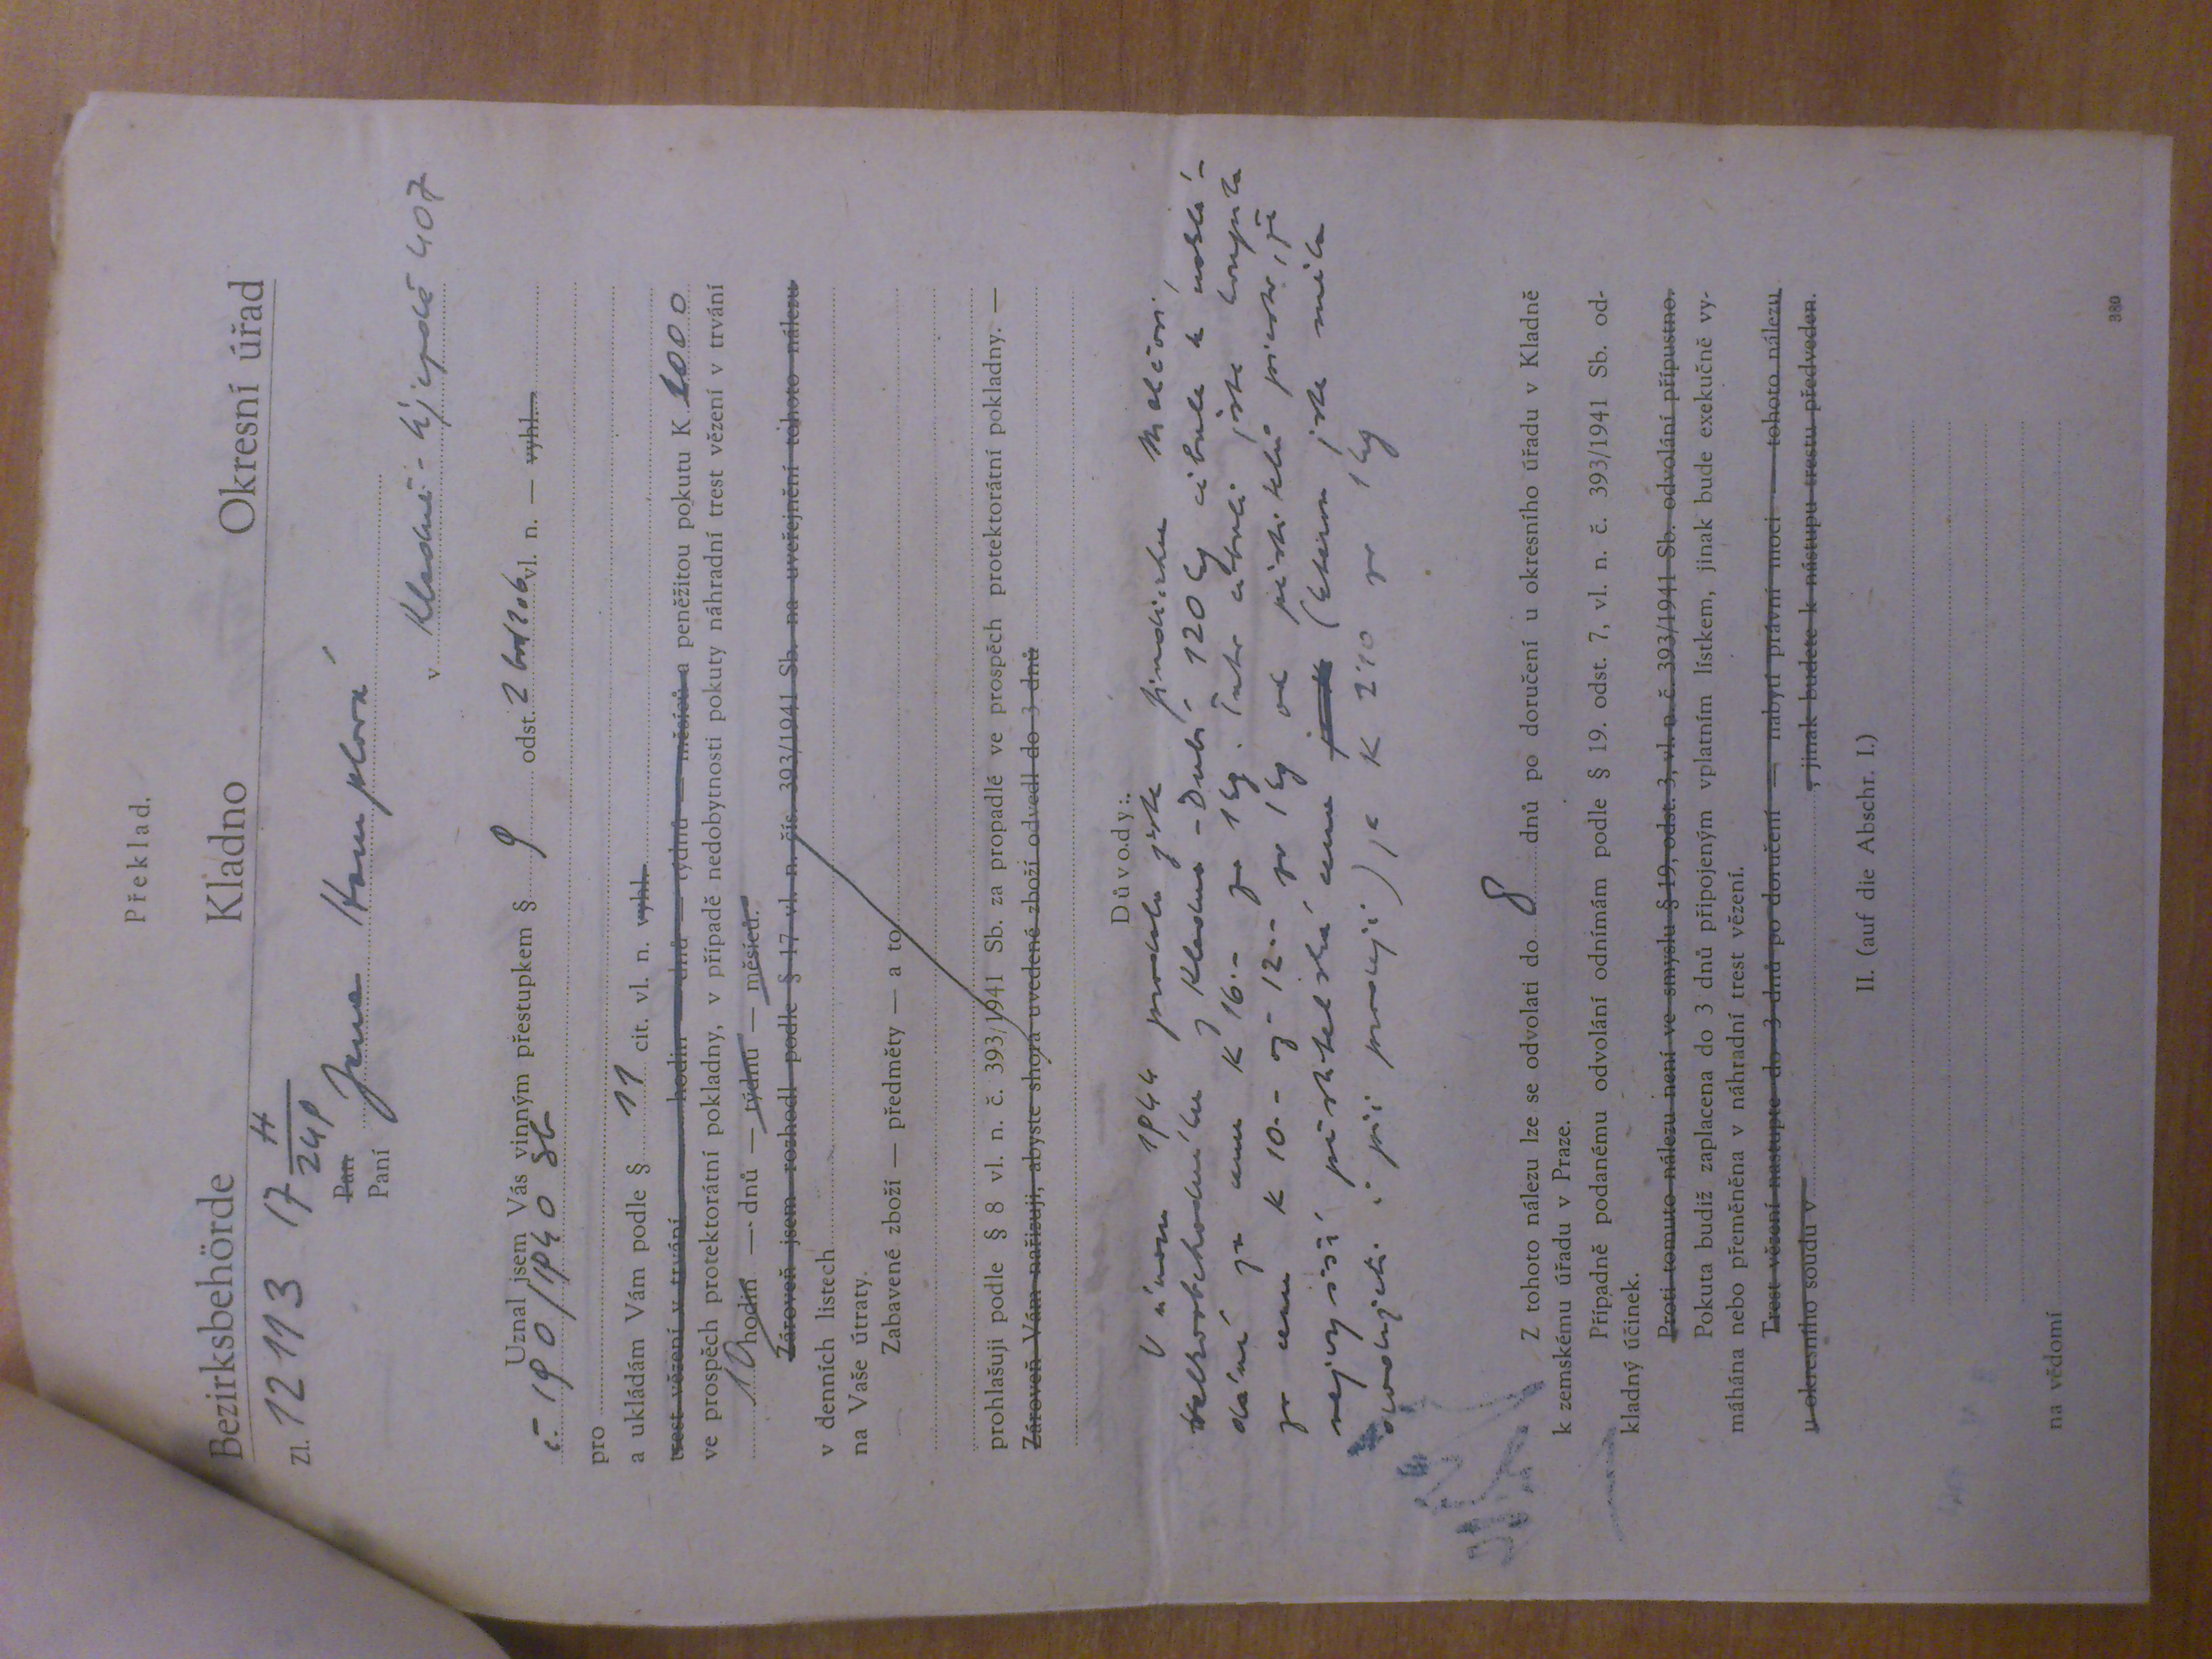 Překlad.
Bezirksbehörde Kladno Okresní úřad
Zl. 12113 17 H
Pan Jana Hamplová
Paní
v Kladně - Újezdě 407
Uznal jsem Vás vinným přestupkem § 9 odst. 2 vl. n. — vyhl.
č. 190/1940 Sb
pro
a ukládám Vám podle § 11 cit. vl. n. vyhl.
trest vězení v trvání hodin — dnů — týdnů — měsíců a peněžitou pokutu K 1000
ve prospěch protektorátní pokladny, v případě nedobytnosti pokuty náhradní trest vězení v trvání
10 hodin — dnů — týdnů — měsíců.
Zároveň jsem rozhodl podle § 17 vl. n. čís. 393/1941 Sb. na uveřejnění tohoto nálezu
v denních listech
na Vaše útraty.
Zabavené zboží — předměty — a to
prohlašuji podle § 8 vl. n. č. 393/1941 Sb. za propadlé ve prospěch protektorátní pokladny. —
Zároveň Vám nařizuji, abyste shora uvedené zboží odvedl do 3 dnů
Důvody:
V únoru 1944 prodala jste Jindřichu
Velkoobchodníku z Kladna - Dubí 120 kg cibule k naklá-
dání za cenu K 16.- za 1 kg. Tuto cibuli jste koupila
za cenu K 10.- až 12.- za 1 kg od pěstitelů přesto, že
nejvyšší pěstitelská cena (kterou jste měla
dodržeti i při prodeji) je K 2.10 za 1 kg
Z tohoto nálezu lze se odvolati do 8 dnů po doručení u okresního úřadu v Kladně
k zemskému úřadu v Praze.
Případně podanému odvolání odnímám podle § 19. odst. 7, vl. n. č. 393/1941 Sb. od-
kladný účinek.
Proti tomuto nálezu není ve smyslu § 19, odst. 3, vl. n. č. 393/1941 Sb. odvolání přípustno.
Pokuta budiž zaplacena do 3 dnů připojeným vplatním lístkem, jinak bude exekučně vy-
máhána nebo přeměněna v náhradní trest vězení.
Trest vězení nastupte do 3 dnů po doručení — nabytí právní moci — tohoto nálezu
u okresního soudu v , jinak budete k nástupu trestu předveden.
II. (auf die Abschr. I.)
na vědomí
380